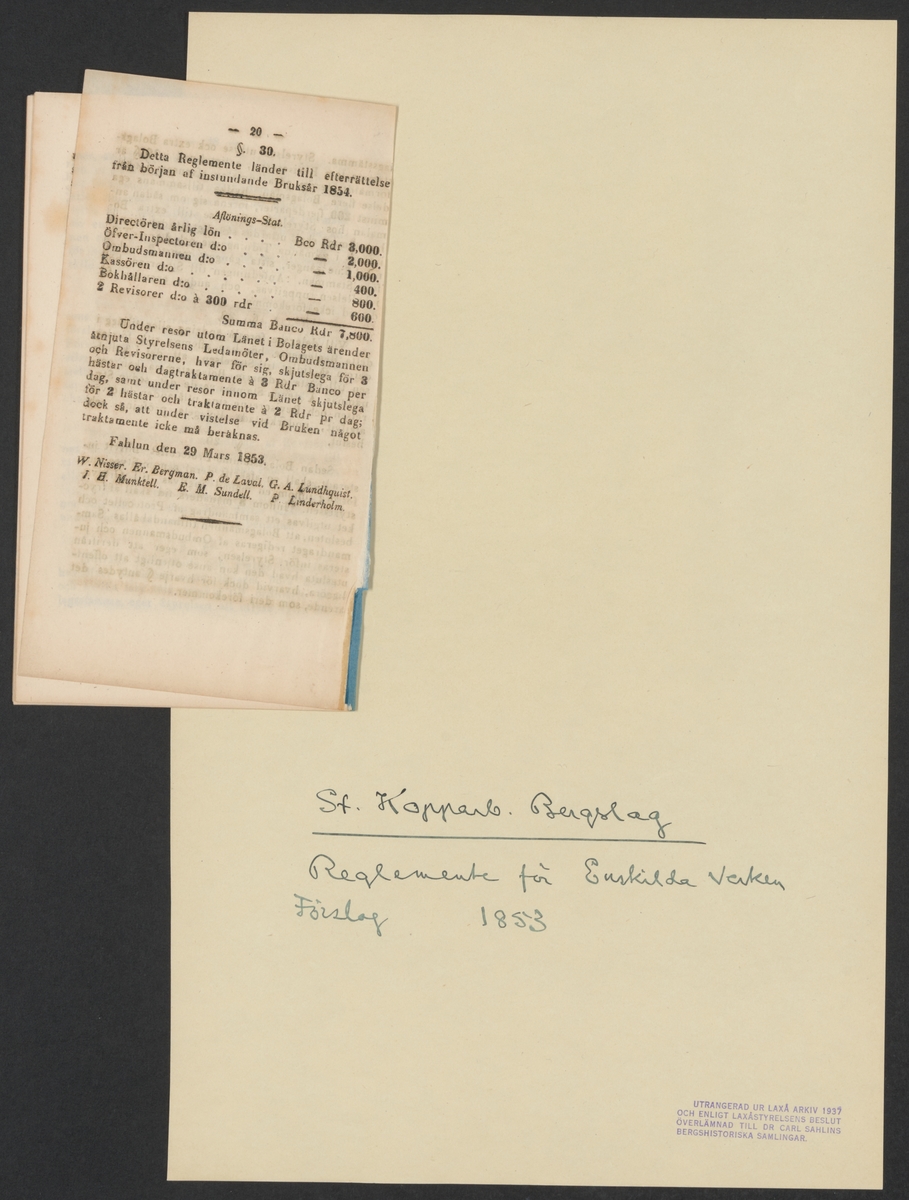 — 20 —
§. 30.
Detta Reglemente länder till efterrättelse
från början af instundande Bruksår 1854.
Aflönings-Stat.
Directören årlig lön . . . . Bco Rdr 3,000.
Öfver-Inspectoren d:o . . . . — 2,000.
Ombudsmannen d:o . . . . — 1,000.
Kassören d:o . . . . . . — 400.
Bokhållaren d:o . . . . . — 800.
2 Revisorer d:o à 300 rdr . — 600.
Summa Banco Rdr 7,800.
Under resor utom Länet i Bolagets ärender
åtnjuta Styrelsens Ledamöter, Ombudsmannen
och Revisorerne, hvar för sig, skjutslega för 3
hästar och dagtraktamente à 3 Rdr Banco per
dag, samt under resor innom Länet skjutslega
för 2 hästar och traktamente à 2 Rdr pr dag;
dock så, att under vistelse vid Bruken något
traktamente icke må beräknas.
Fahlun den 29 Mars 1853.
W. Nisser. Er. Bergman. P. de Laval. G. A. Lundhquist.
J. H. Munktell. E. M. Sundell. P Linderholm.
St. Kopparb. Bergslag
Reglemente för Enskilda Verken
Förslag 1853
UTRANGERAD UR LAXÅ ARKIV 1937
OCH ENLIGT LAXÅSTYRELSENS BESLUT
ÖVERLÄMNAD TILL DR CARL SAHLINS
BERGSHISTORISKA SAMLINGAR.